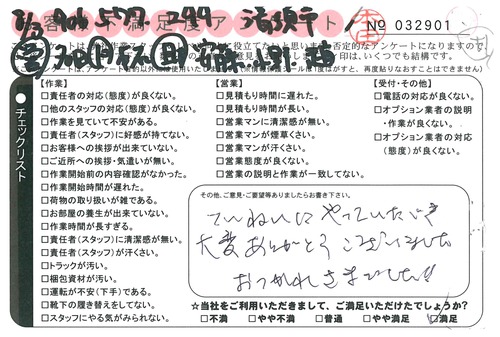 No 032901
チェックリスト
【作業】
□責任者の対応(態度)が良くない。
□他のスタッフの対応(態度)が良くない。
□作業を見ていて不安がある。
□責任者(スタッフ)に好感が持てない。
□お客様への挨拶が出来ていない。
□ご近所への挨拶・気遣いが無い。
□作業開始前の内容確認がなかった。
□作業開始時間が遅れた。
□荷物の取り扱いが雑である。
□お部屋の養生が出来ていない。
□作業時間が長すぎる。
□責任者(スタッフ)に清潔感が無い。
□責任者(スタッフ)が汗くさい。
□トラックが汚い。
□梱包資材が汚い。
□運転が不安(下手)である。
□靴下の履き替えをしてない。
□スタッフにやる気がみられない。
【営業】
□見積時間に遅れた。
□見積もり時間が長い。
□営業マンに清潔感が無い。
□営業マンが煙草くさい。
□営業マンが汗くさい。
□営業態度が良くない。
□営業の説明と作業が一致してない。
【受付・その他】
□電話の対応が良くない。
□オプション業者の説明
・作業が良くない。
□オプション業者の対応
(態度)が良くない。
その他、ご意見・ご要望等ありましたらお書き下さい。
ていねいにやっていただき
大変ありがとうございました
おつかれさまでした!!
☆当社をご利用いただきまして、ご満足いただけたでしょうか?
□不満 □やや不満 □普通 □やや満足 □満足